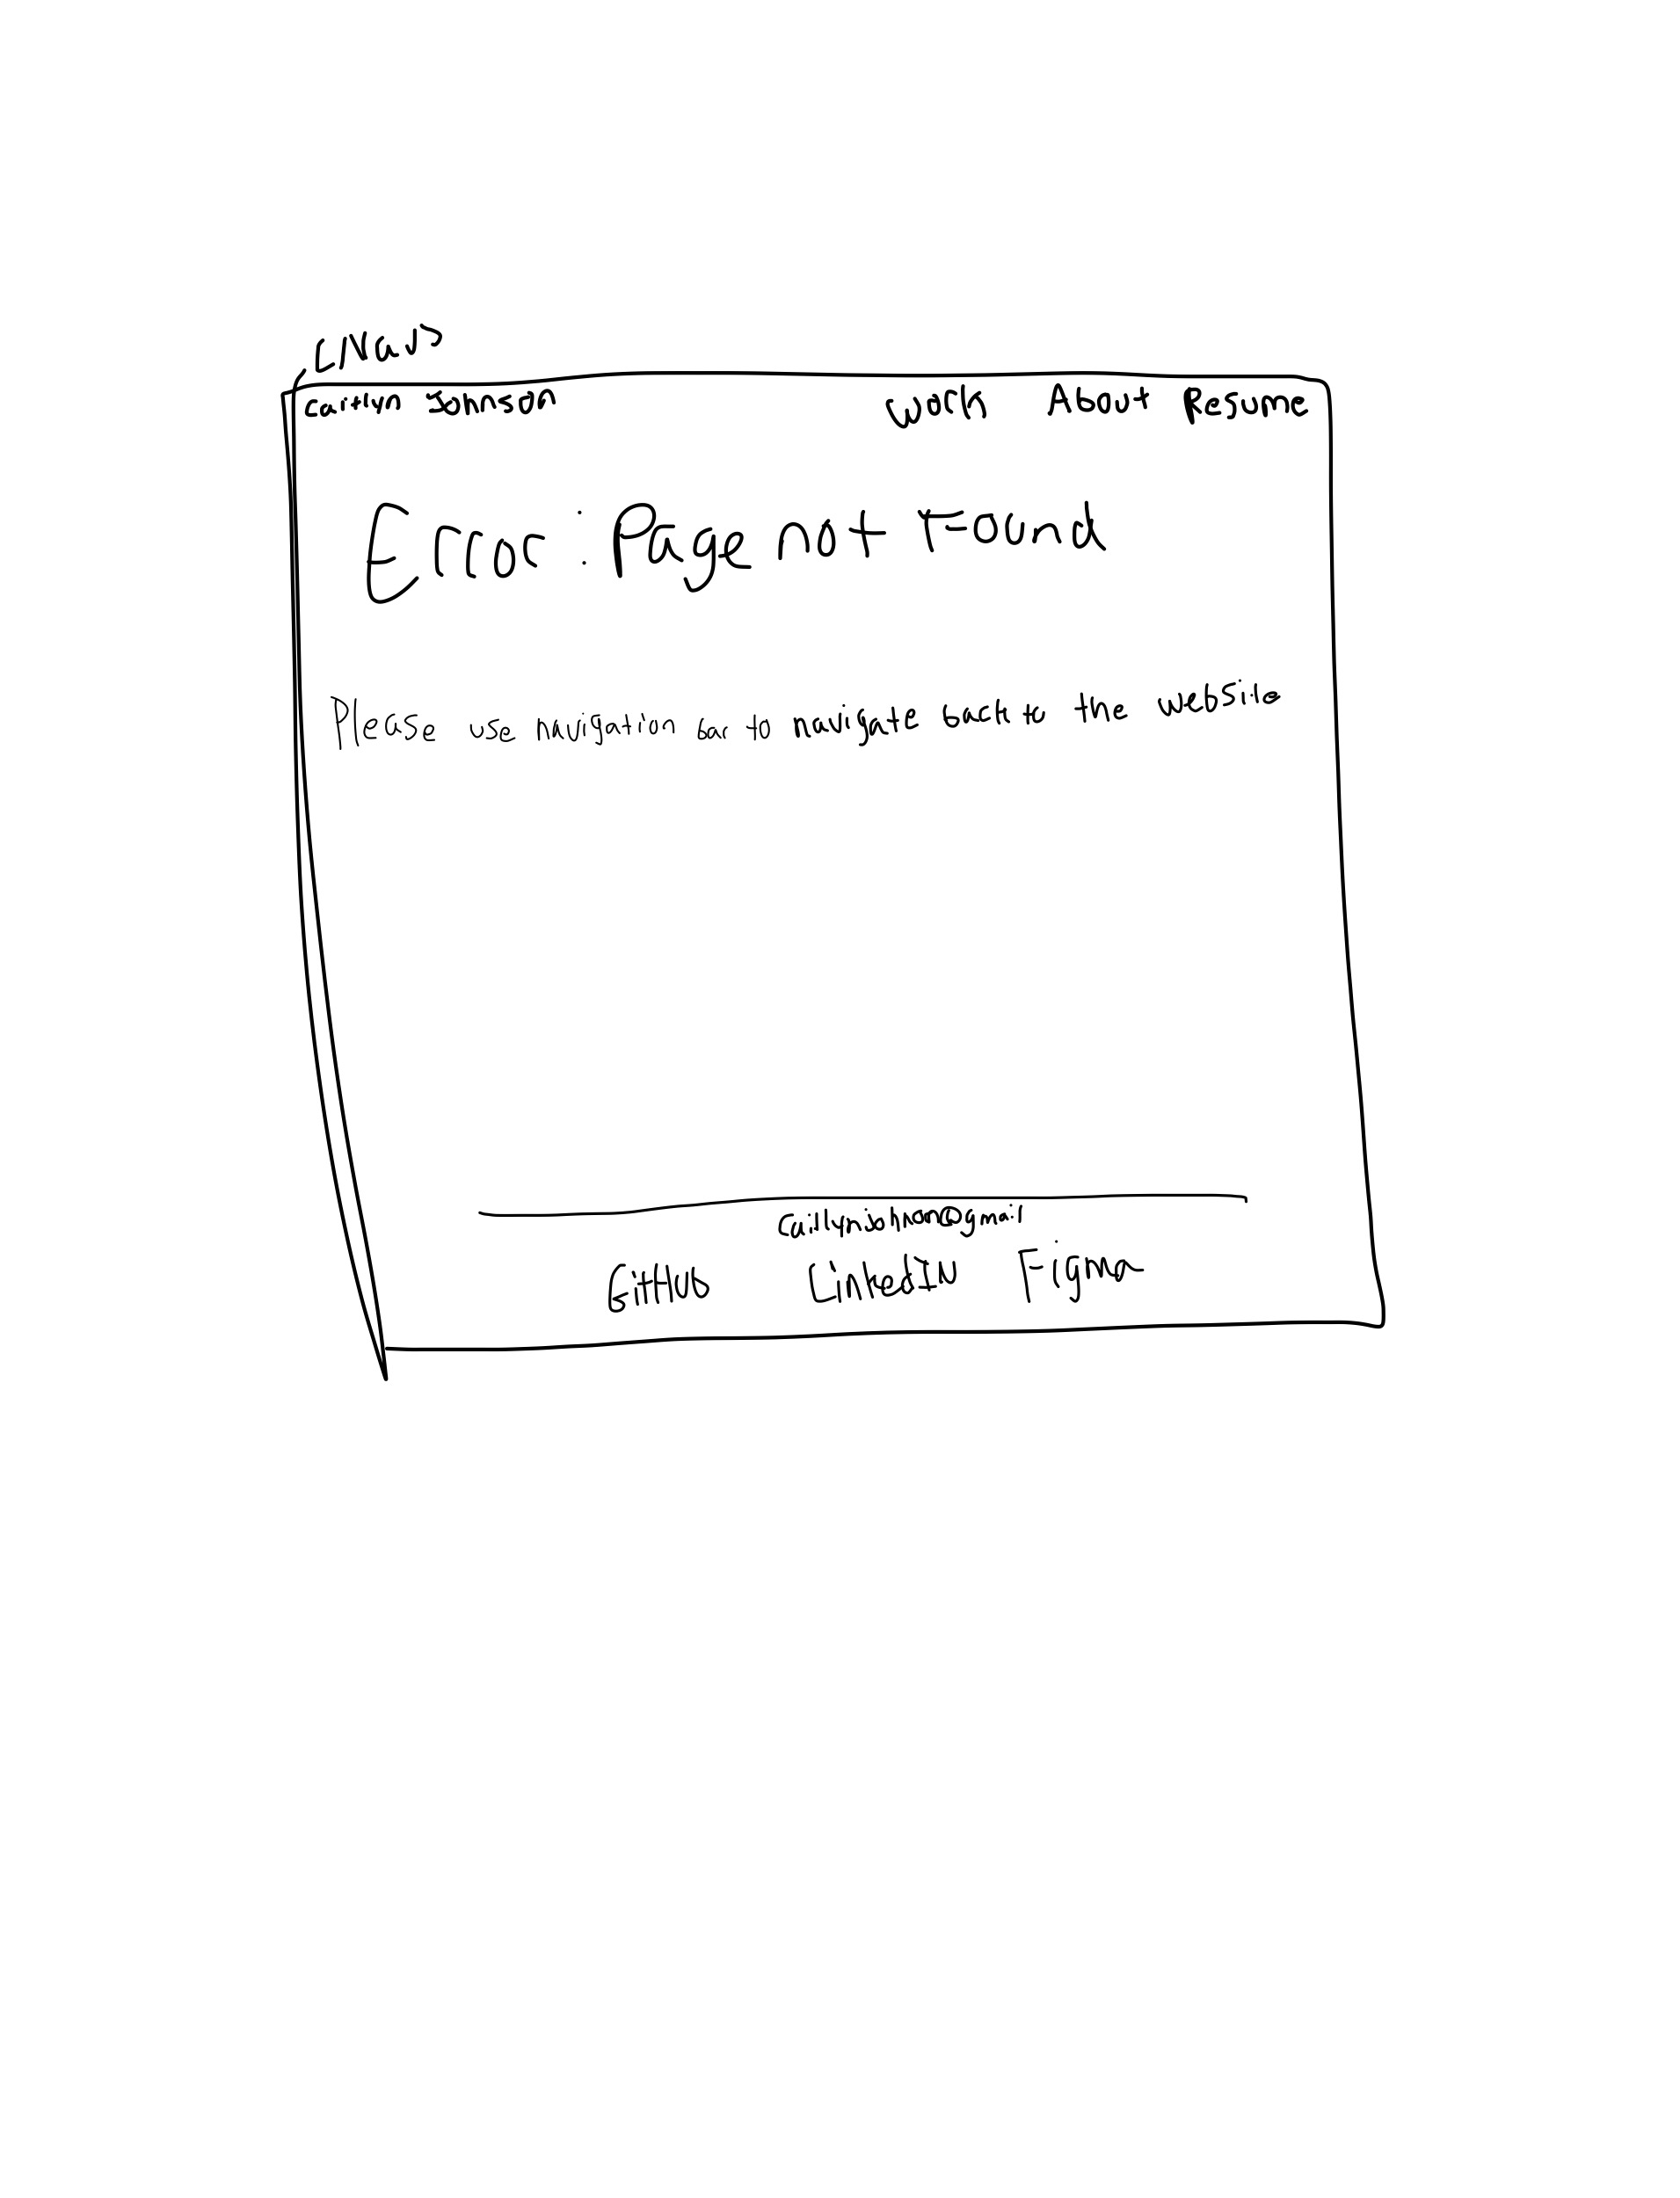 <Nav>
Caitlyn Johnson Work About Resume
Error: Page not Found
Please use navigation bar to navigate back to the website
GitHub LinkedIN Figma